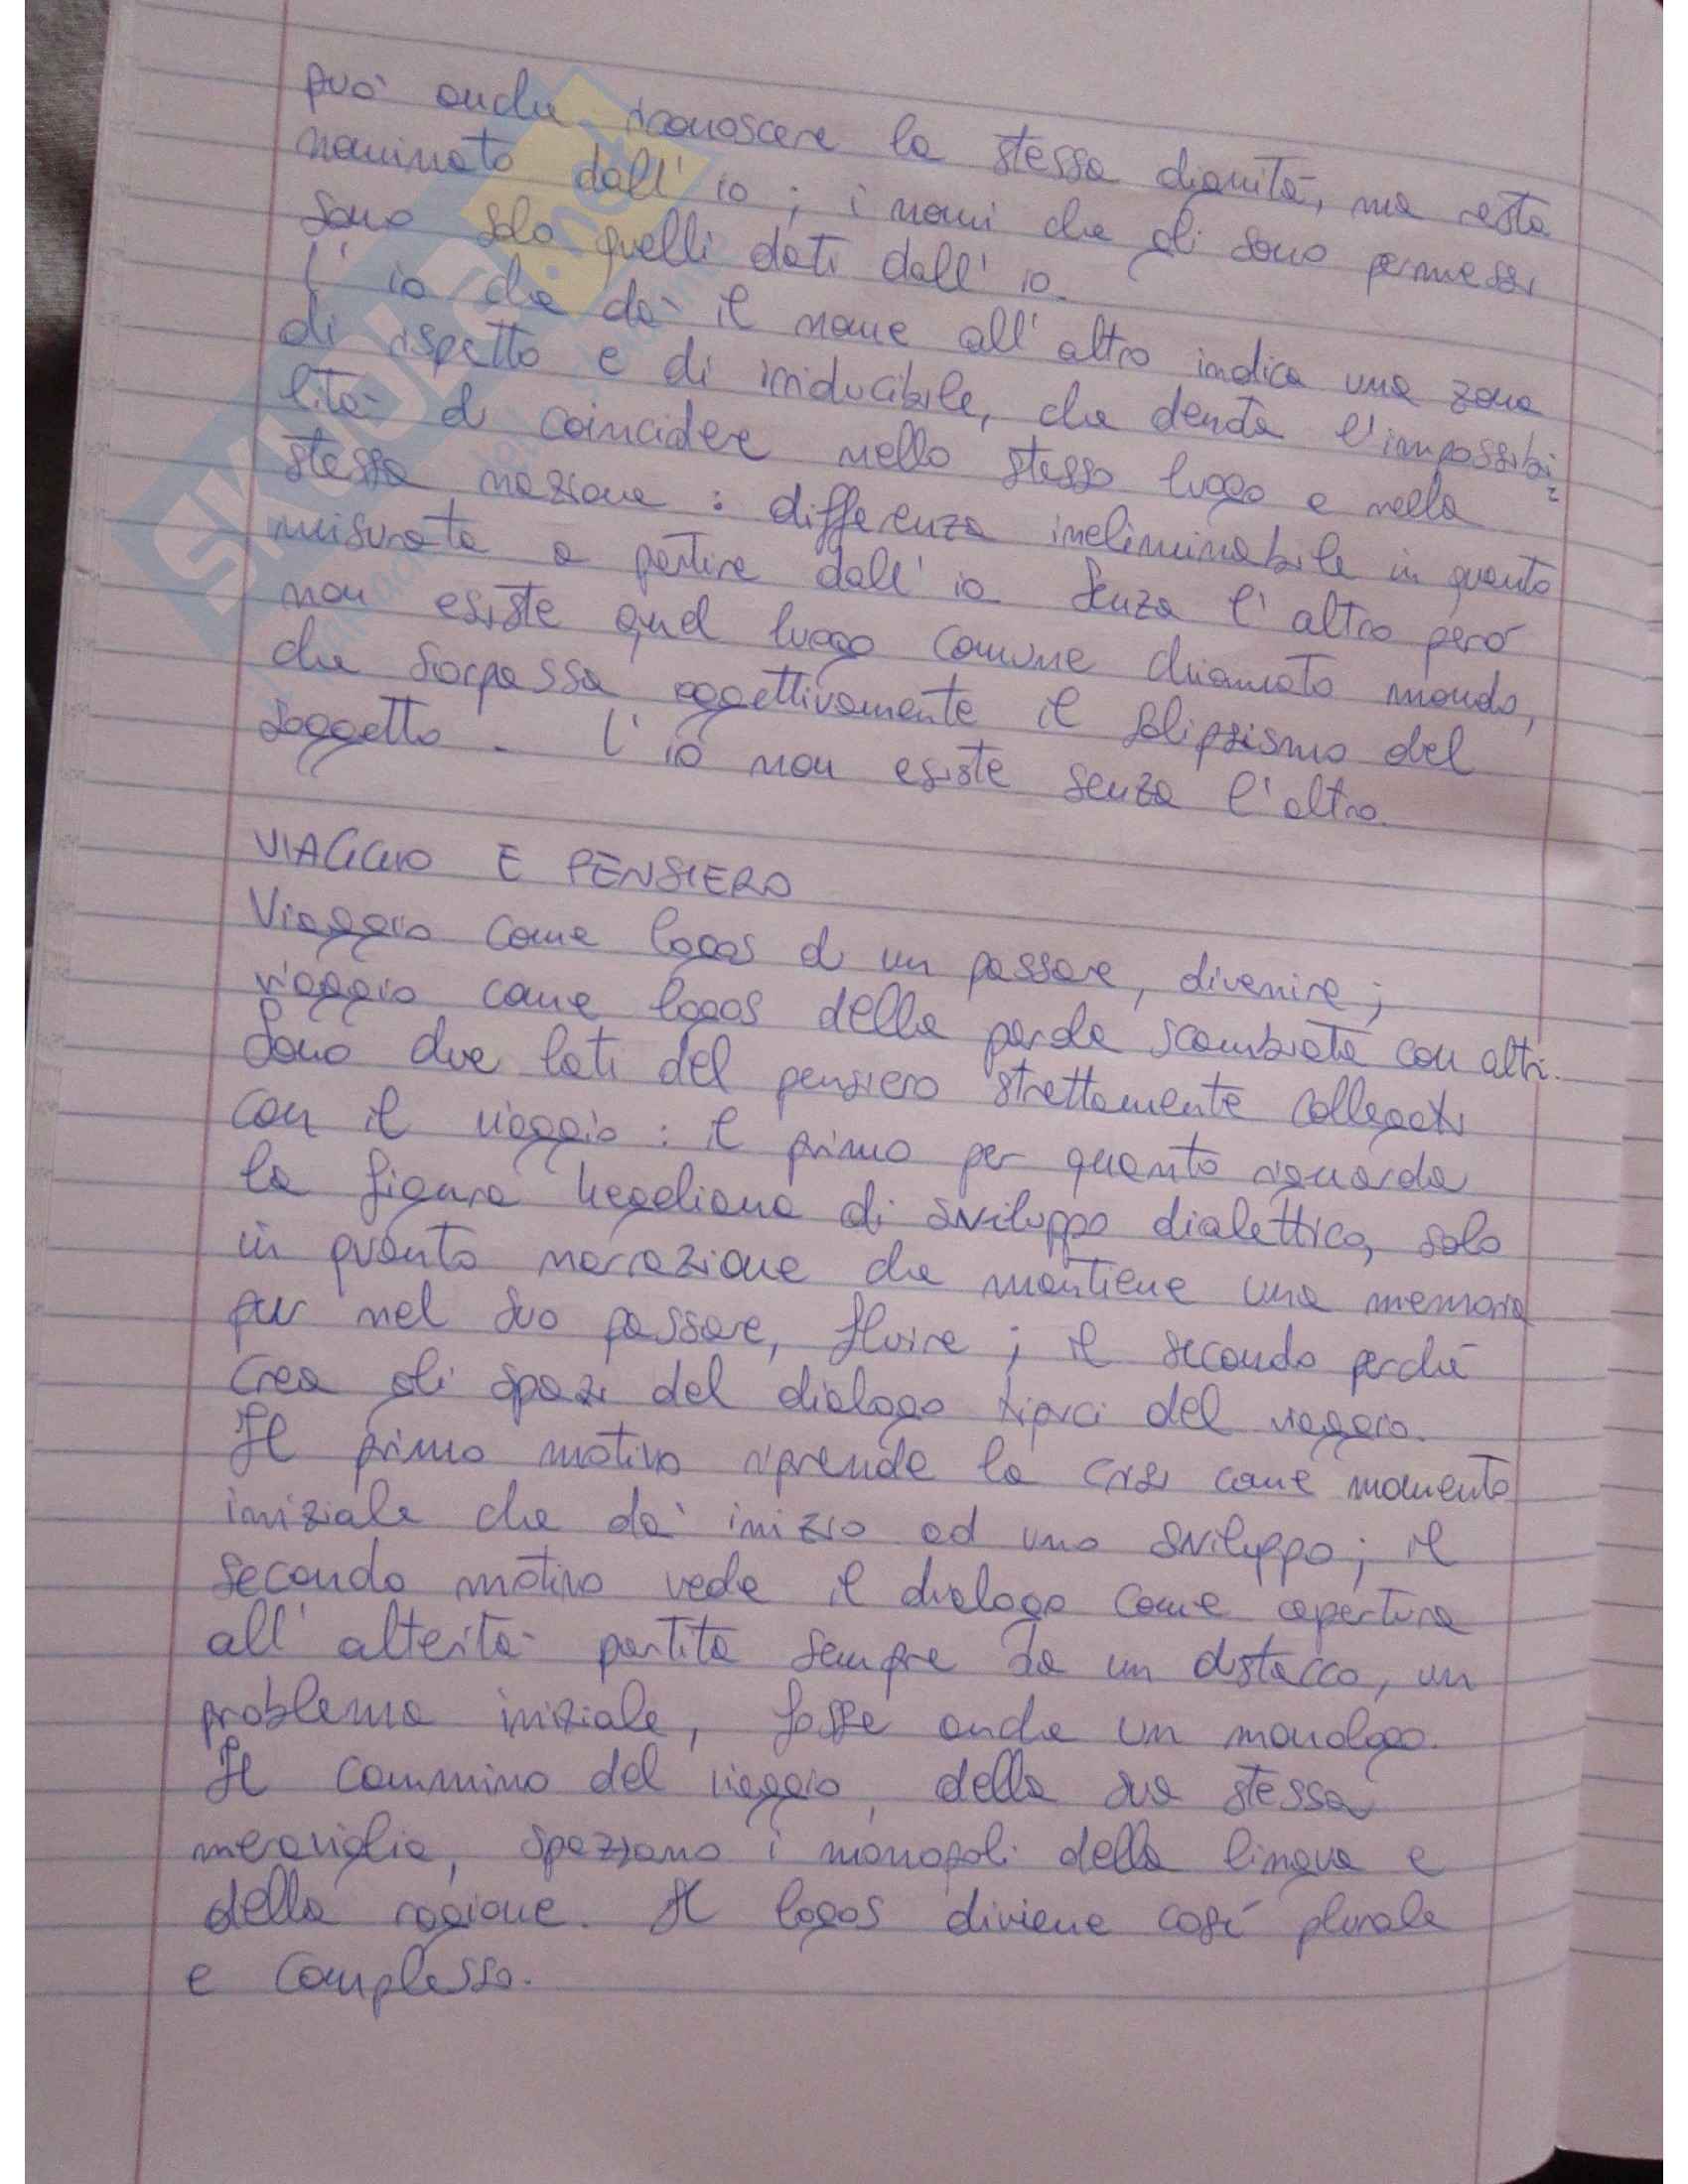 può anche riconoscere la stessa dignità, ma resta
nominato dall' io ; i nomi che gli sono permessi
sono solo quelli dati dall' io.
L' io che dà il nome all' altro indica una zona
di rispetto e di irriducibile, che denota l'impossibi=
lità di coincidere nello stesso luogo e nella
stessa nazione : differenza ineliminabile in quanto
misurata a partire dall' io. Senza l' altro però
non esiste quel luogo comune chiamato mondo,
che sorpassa oggettivamente il solipsismo del
soggetto. L' io non esiste senza l'altro.
VIAGGIO E PENSIERO
Viaggio come logos di un passare, divenire ;
viaggio come logos della parola scambiata con altri.
Sono due lati del pensiero strettamente collegati
con il viaggio : il primo per quanto riguarda
la figura hegeliana di sviluppo dialettico, solo
in quanto narrazione che mantiene una memoria
pur nel suo passare, fluire ; il secondo perché
crea gli spazi del dialogo tipici del viaggio.
Il primo motivo riprende la crisi come momento
iniziale che dà inizio ad uno sviluppo ; il
secondo motivo vede il dialogo come apertura
all' alterità partita sempre da un distacco, un
problema iniziale, fosse anche un monologo.
Il cammino del viaggio, della sua stessa
meraviglia, spezzano i monopoli della lingua e
della ragione. Il logos diviene così plurale
e complesso.
SKUOLA.net